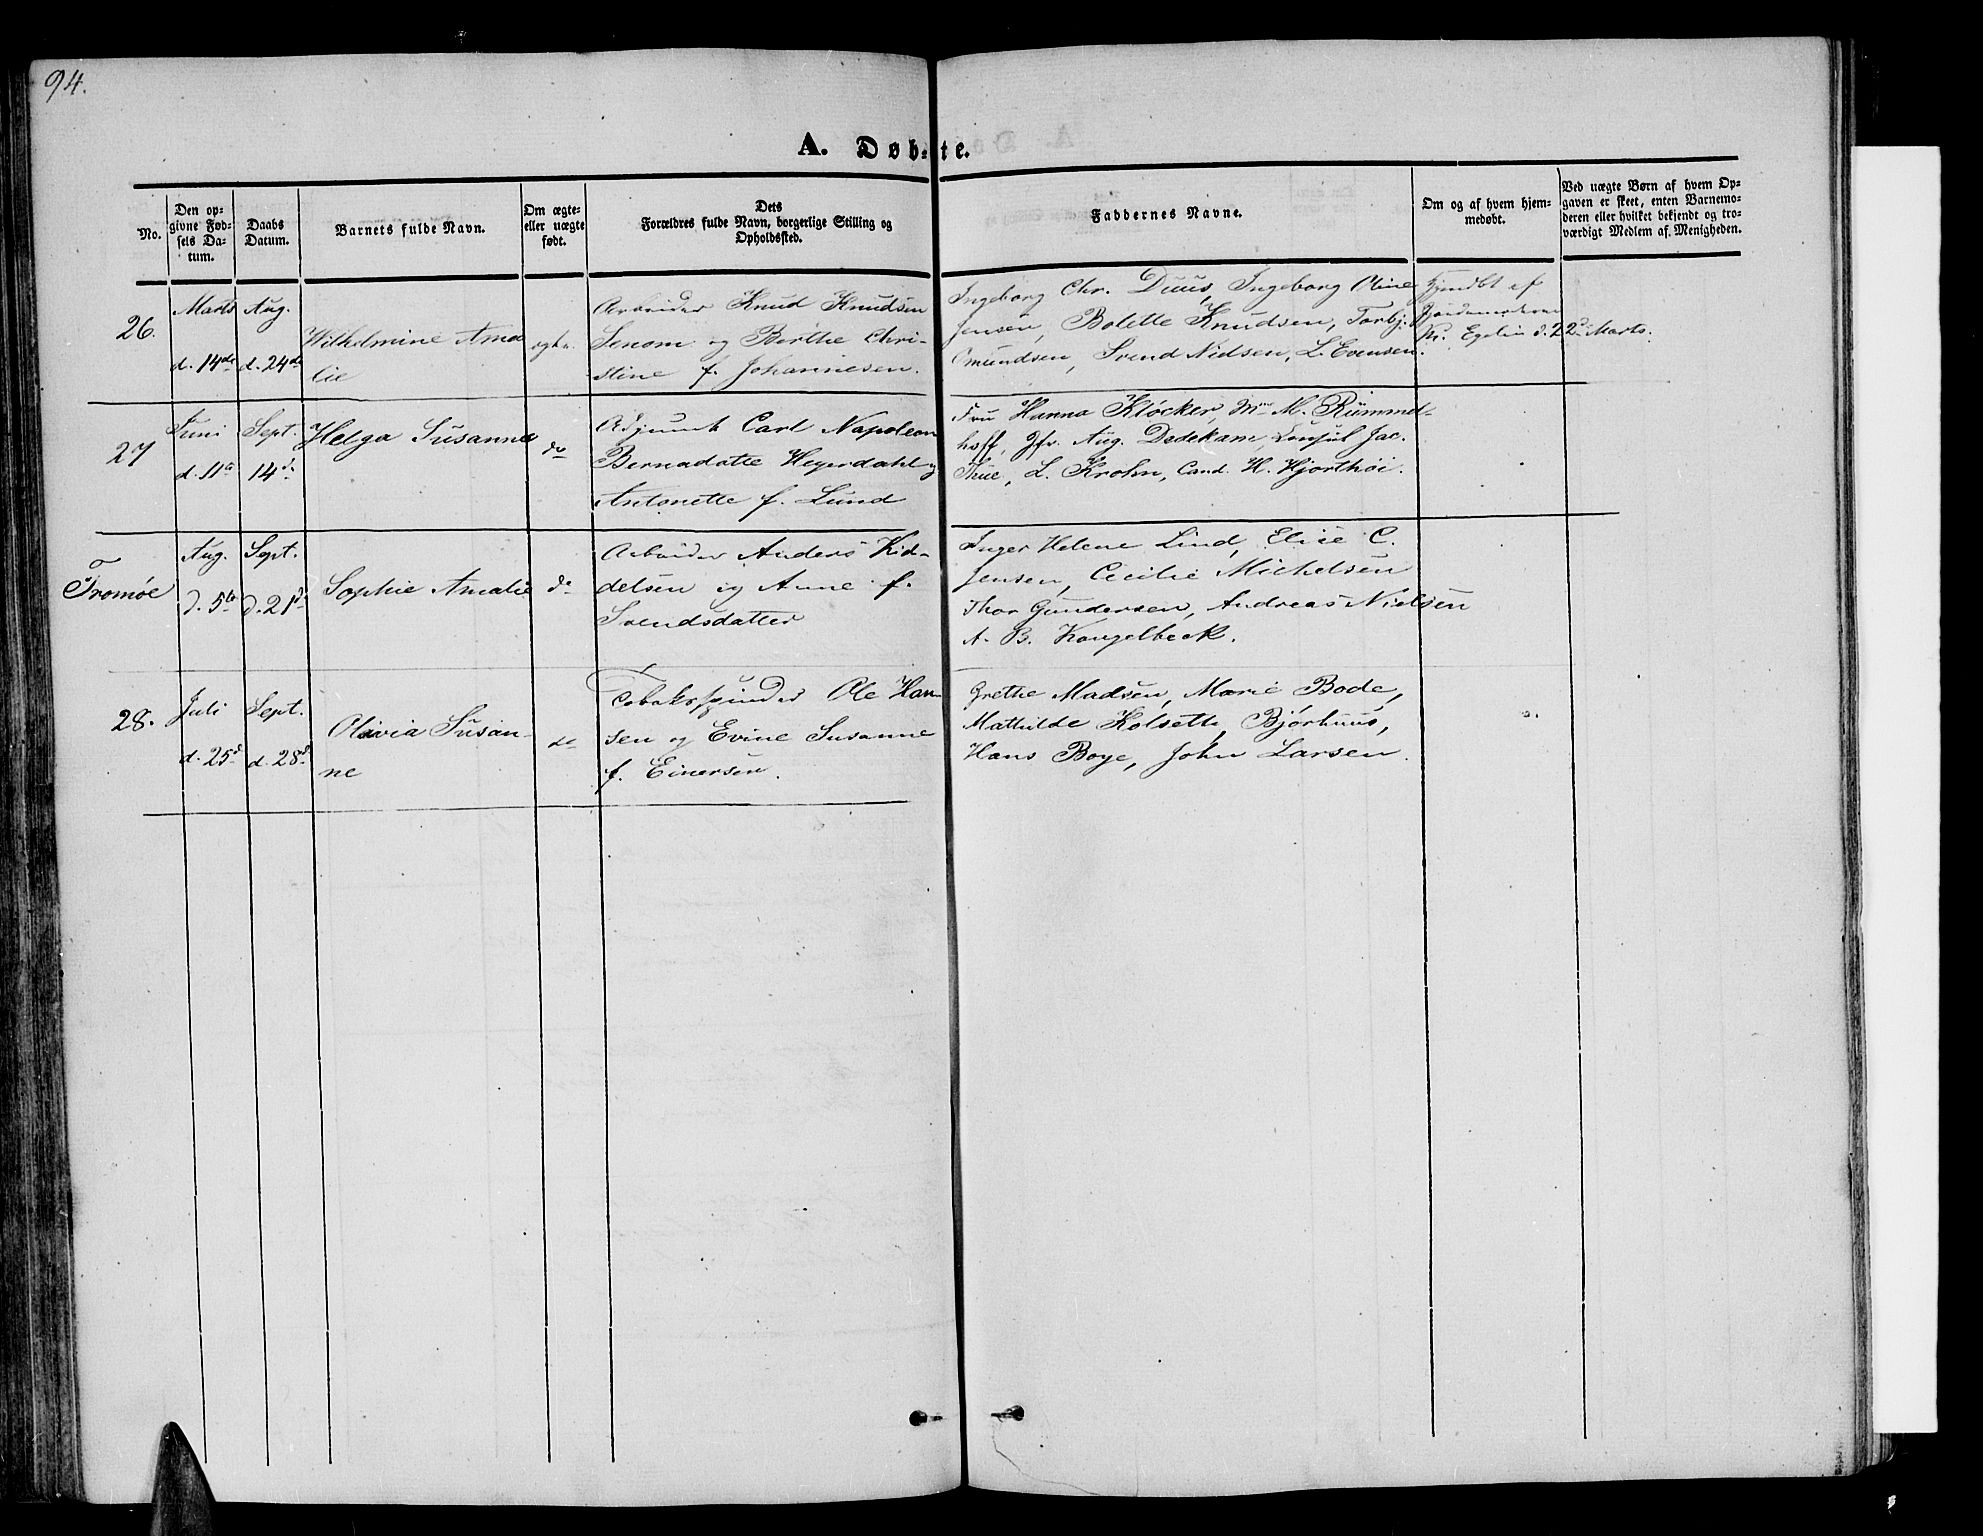 94.
A. Døb-te.
No.
Den op-
givne Fød-
sels Da-
tum.
Daabs
Datum.
Barnets fulde Navn.
Om ægte-
eller uægte
født.
Dets
Forældres fulde Navn, borgerlige Stilling og
Opholdssted.
Faddernes Navne.
Om og af hvem hjem-
medøbt.
Ved uægte Børn af hvem Op-
gaven er skeet, enten Barnemo-
deren eller hvilket bekjendt og tro-
værdigt Medlem af Menigheden.
26.
Marts
d. 14de
Aug.
d. 24de
Wilhelmine Ama
lie
Arbeider Knud Knudsen
Senom og Berthe Chri-
stine f. Johannesen.
Ingeborg Chr. Duus, Ingeborg Oline
Jensen, Bolette Knudsen, Torbj.
Omundsen, Svend Nielsen, L. Evensen.
Hjemdbt af
Jordemoderen
Fr. Egelin d. 22d Marts.
27
Juni
d. 11te
Sept.
14d.
Helga Susanne
do
Adjunct Carl Napoleon
Bernadotte Heyerdahl og
Antonette f. Lund
Fru Hanna Kløcker, Mme M. Rümmel-
hoff, Jfr. Aug. Dedekam, Consul Jac.
Thue, L. Krohn, Cand. H. Hjorthöi.
Tromøe
Aug.
d. 5te
Sept.
d. 21d.
Sophie Amalie
do
Arbeider Anders Kid-
delsen og Anne f.
Svendsdatter
Inger Helene Lind, Elise C.
Jensen, Cecilie Michelsen
Thor Gundersen, Andreas Nielsen
A. B. Kongelbeck.
28.
Juli
d. 25d
Sept.
d. 28d
Olivia Susan-
ne
do
Tobaksspinder Ole Han
sen og Evine Susanne
f. Einersen.
Grethe Madsen, Marie Bode,
Mathilde Kolsette, Bjørhuus,
Hans Boye, John Larsen.